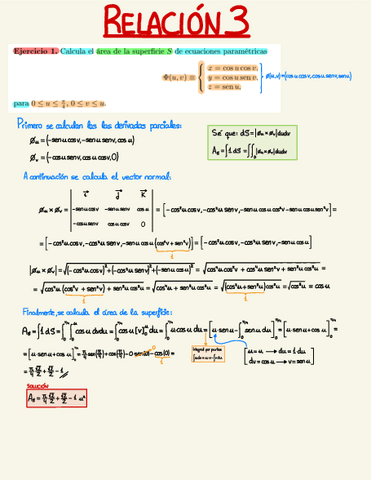 RELACIÓN 3
Ejercicio 1. Calcula el área de la superficie S de ecuaciones paramétricas
Φ(u, v) ≡ { x = cos u cos v, y = cos u sen v, z = sen u, } → φ(u,v) = (cos u cos v, cos u sen v, sen u)
para 0 ≤ u ≤ π/4, 0 ≤ v ≤ u.
Primero se calculan las las derivadas parciales:
Øu = (-sen u cos v, -sen u sen v, cos u)
Øv = (-cos u sen v, cos u cos v, 0)
Sé que: dS = |Øu × Øv| du dv
A_θ = ∫ 1 dS = ∫∫ |Øu × Øv| du dv
A continuación se calcula el vector normal:
Øu × Øv = | i j k ; -sen u cos v -sen u sen v cos u ; -cos u sen v cos u cos v 0 | = [-cos²u cos v, -cos²u sen v, -sen u cos u cos²v - sen u cos u sen²v] =
= [-cos²u cos v, -cos²u sen v, -sen u cos u (cos²v + sen²v)] = [-cos²u cos v, -cos²u sen v, -sen u cos u]
1
|Øu × Øv| = √((-cos²u cos v)² + (-cos²u sen v)² + (-sen u cos u)²) = √(cos⁴u cos²v + cos⁴u sen²v + sen²u cos²u) =
= √(cos⁴u (cos²v + sen²v) + sen²u cos²u) = √(cos⁴u + sen²u cos²u) = √((cos²u + sen²u) cos²u) = √(cos²u) = cos u
1 1
Finalmente, se calcula el área de la superficie:
A_θ = ∫ 1 dS = ∫₀^(π/4) ∫₀^u cos u dv du = ∫₀^(π/4) cos u [v]₀^u du = ∫₀^(π/4) u cos u du = [u · sen u - ∫ sen u du]₀^(π/4) = [u · sen u + cos u]₀^(π/4) =
= [u · sen u + cos u]₀^(π/4) = π/4 sen(π/4) + cos(π/4) - 0 sen(0) - cos(0) =
1
Integral por partes
∫ u dv = u · v - ∫ v du
u = u → du = 1 du
dv = cos u → v = sen u
= π/4 · √2/2 + √2/2 - 1
SOLUCIÓN
A_θ = π/4 · √2/2 + √2/2 - 1 u²